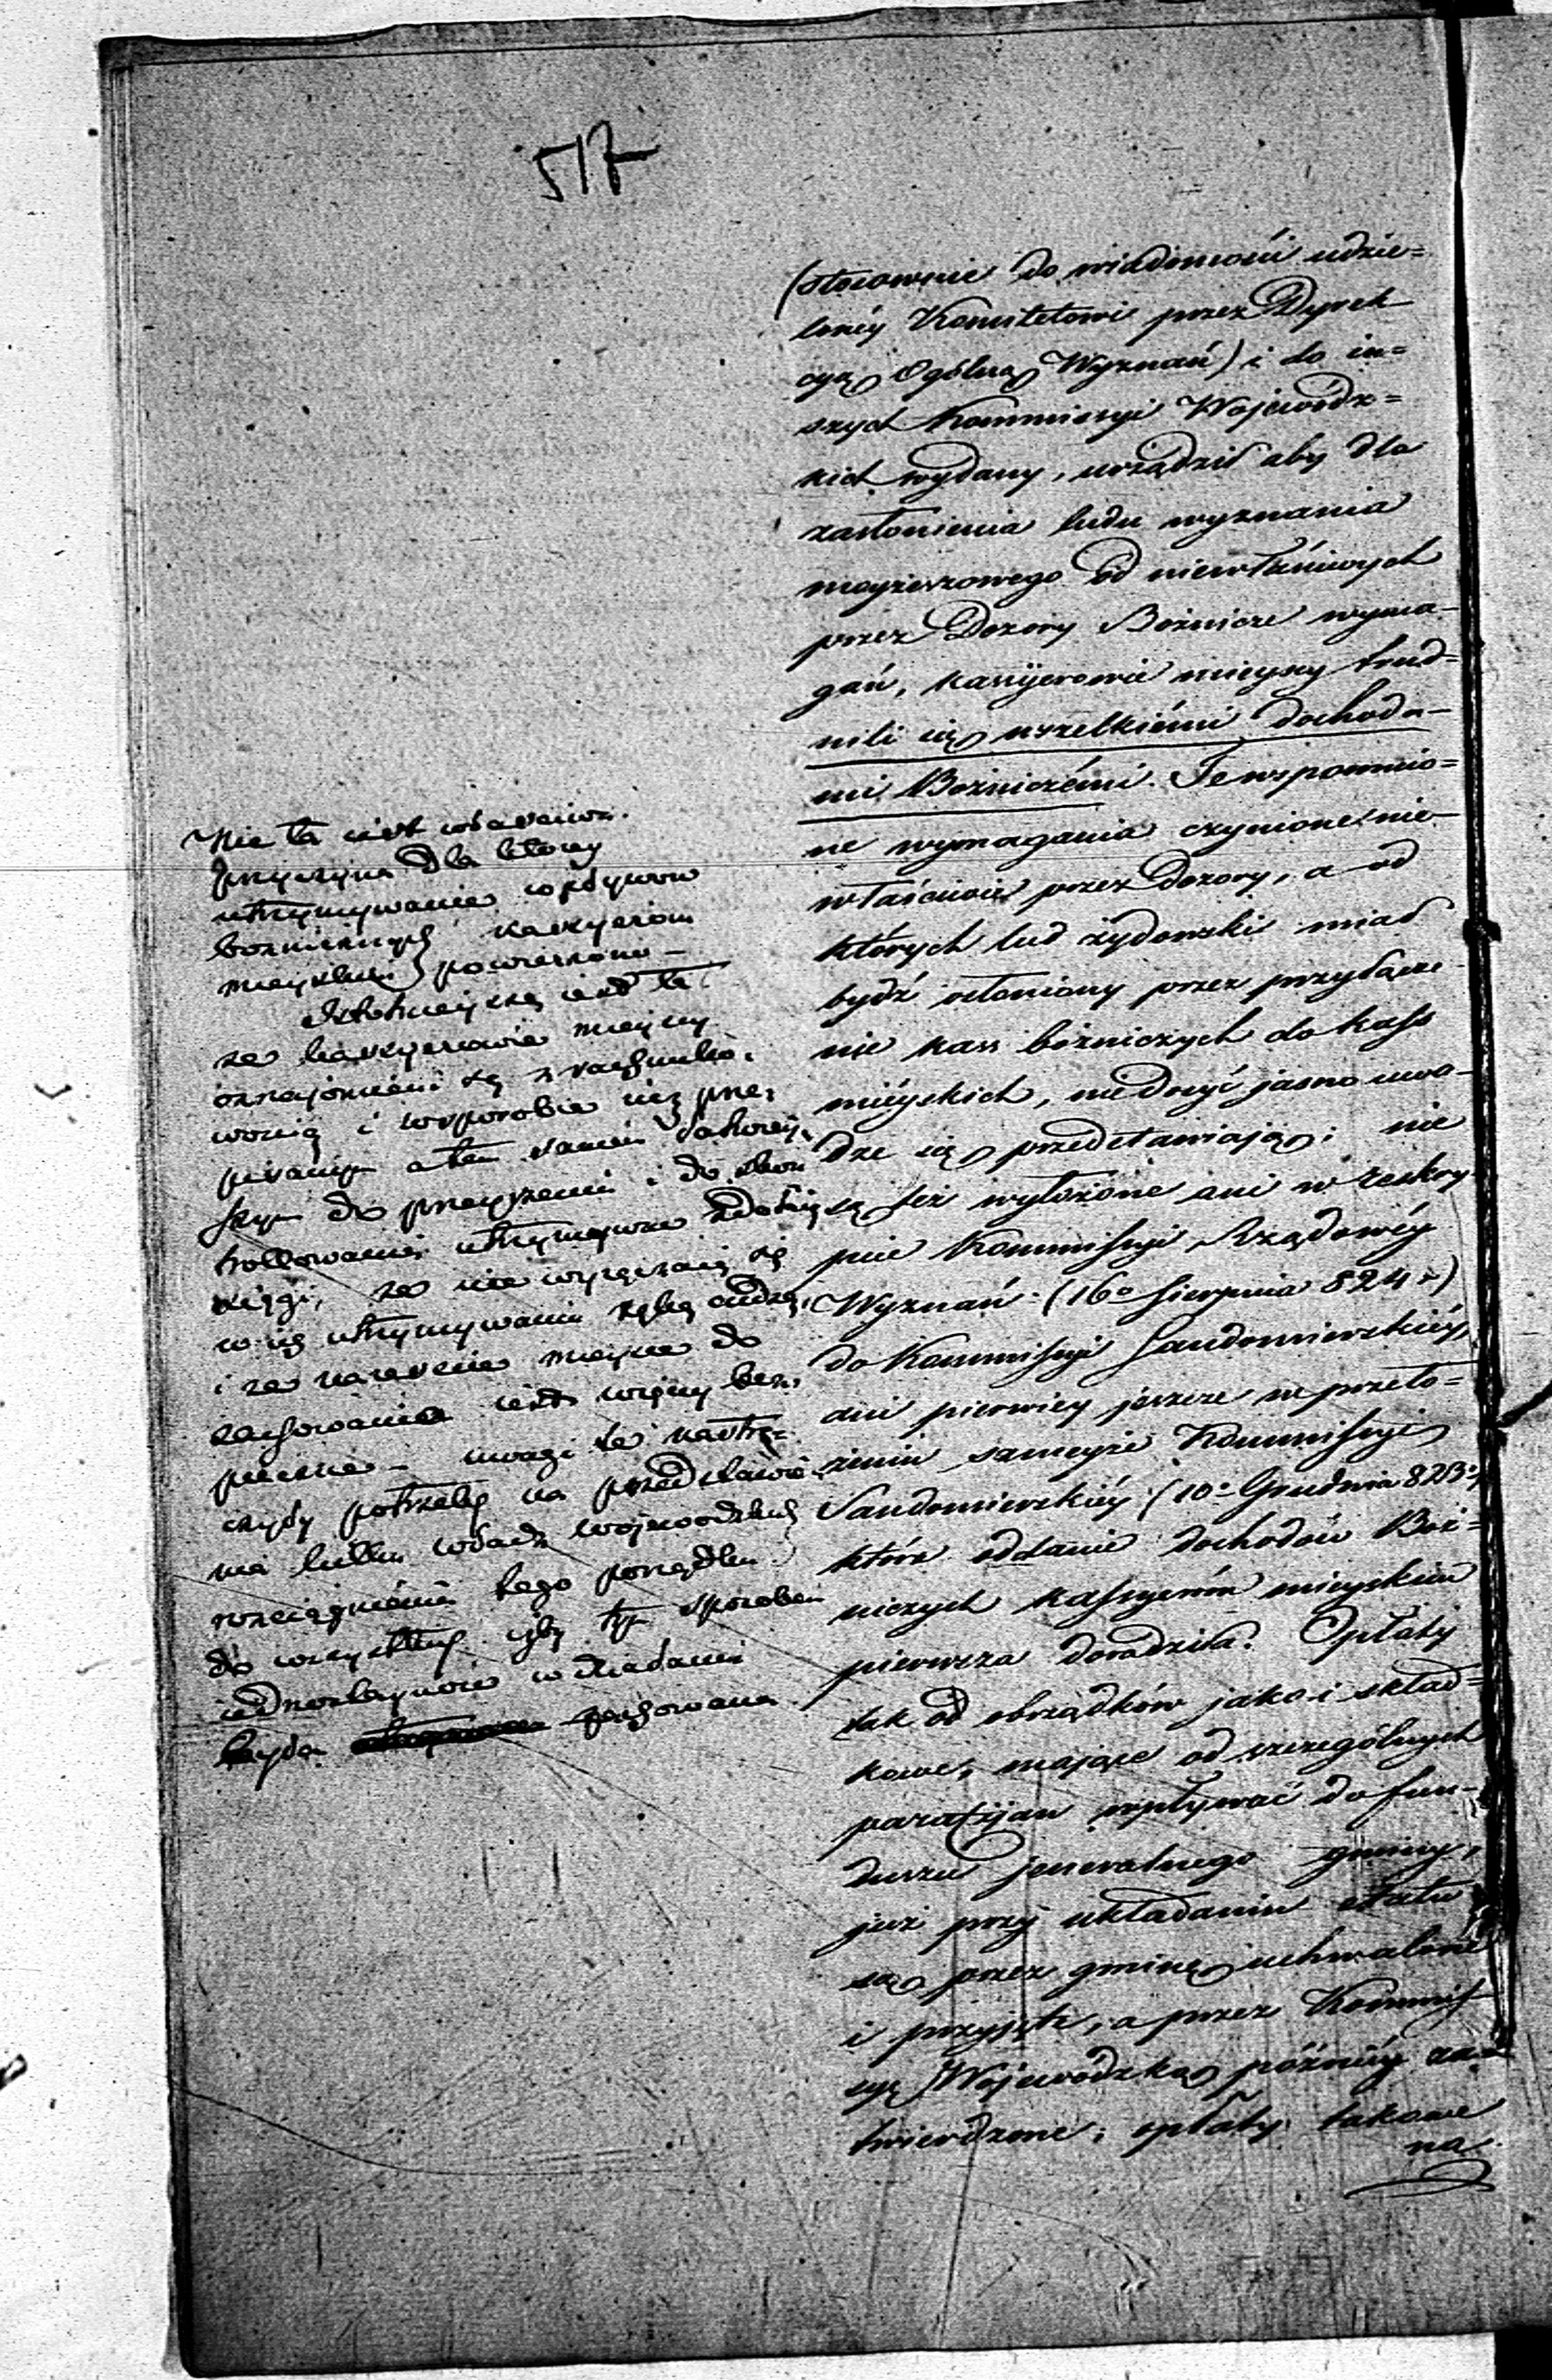 517
(stosownie do wiadomości udzie=
lonéy Komitetowi przez Dyrek
cyą Ogólną Wyznań) i do in=
szych Kommissyi Wojewódz=
kich wydany, urządził aby dla
zasłonienia ludu wyznania
mojżeszowego od niewłaściwych
przez Dozory Bożnicze wyma-
gań, kassyerowie mieyscy trud=
nili się wszelkiémi dochoda-
mi Bożniczémi. Te wspomnio=
ne wymagania czynione nie-
właściwie przez Dozory, a od
których lud żydowski miał
bydź osłoniony przez przyłącze-
nie kass bóżniczych do kass
mieyskich, nie dosyć jasno uwa-
dze się przedstawiają; nie
są też wyłożone ani w reskry
pcie Kommissyi Rządowéy
Wyznań (16º Sierpnia 824 r)
do Kommissyi Sandomierskiéy,
ani pierwiey jeszcze w przeło=
żeniu sameyże Kommissyi
Sandomierskiéy (10º Grudnia 823)
która oddanie dochodów Boż=
niczych kassyerom mieyskim
pierwsza doradziła. Opłaty
tak od obrządków jako i skład=
kowe, mające od szczególnych
parafijan wpływać do fun-
duszu jeneralnego gminy,
już przy układaniu etatu
są przez gminę uchwalone
i przyjęte, a przez Kommis
syą Wojewodzką późniéy za-
twierdzone; opłaty takowe
na
Nie ta iest właściwa
przyczyna dla którey
utrzymywanie wpływów
bożniczych kassyerom
mieyskim powierzono –
Istotnieyszą iest ta
że kassyerowie mieyscy
oznajomieni są z rachunko-
wością i usposobieni iey prze-
pisami a tem samem
do i do kon
trollowania utrzymywać
xięgi, że nie wyręczaią się
w ich utrzymywaniu ręką cudzą,
i że nareszcie mieysce do
zachowania iest więcey bez-
pieczne – uwagi te nastrę-
czyły potrzebę na przedstawie-
nia kilku władz wojewodzkich
rozciągnienia tego porządku
do wszystkich, żeby tym sposobem
iednostayność w działaniu
była zachowana